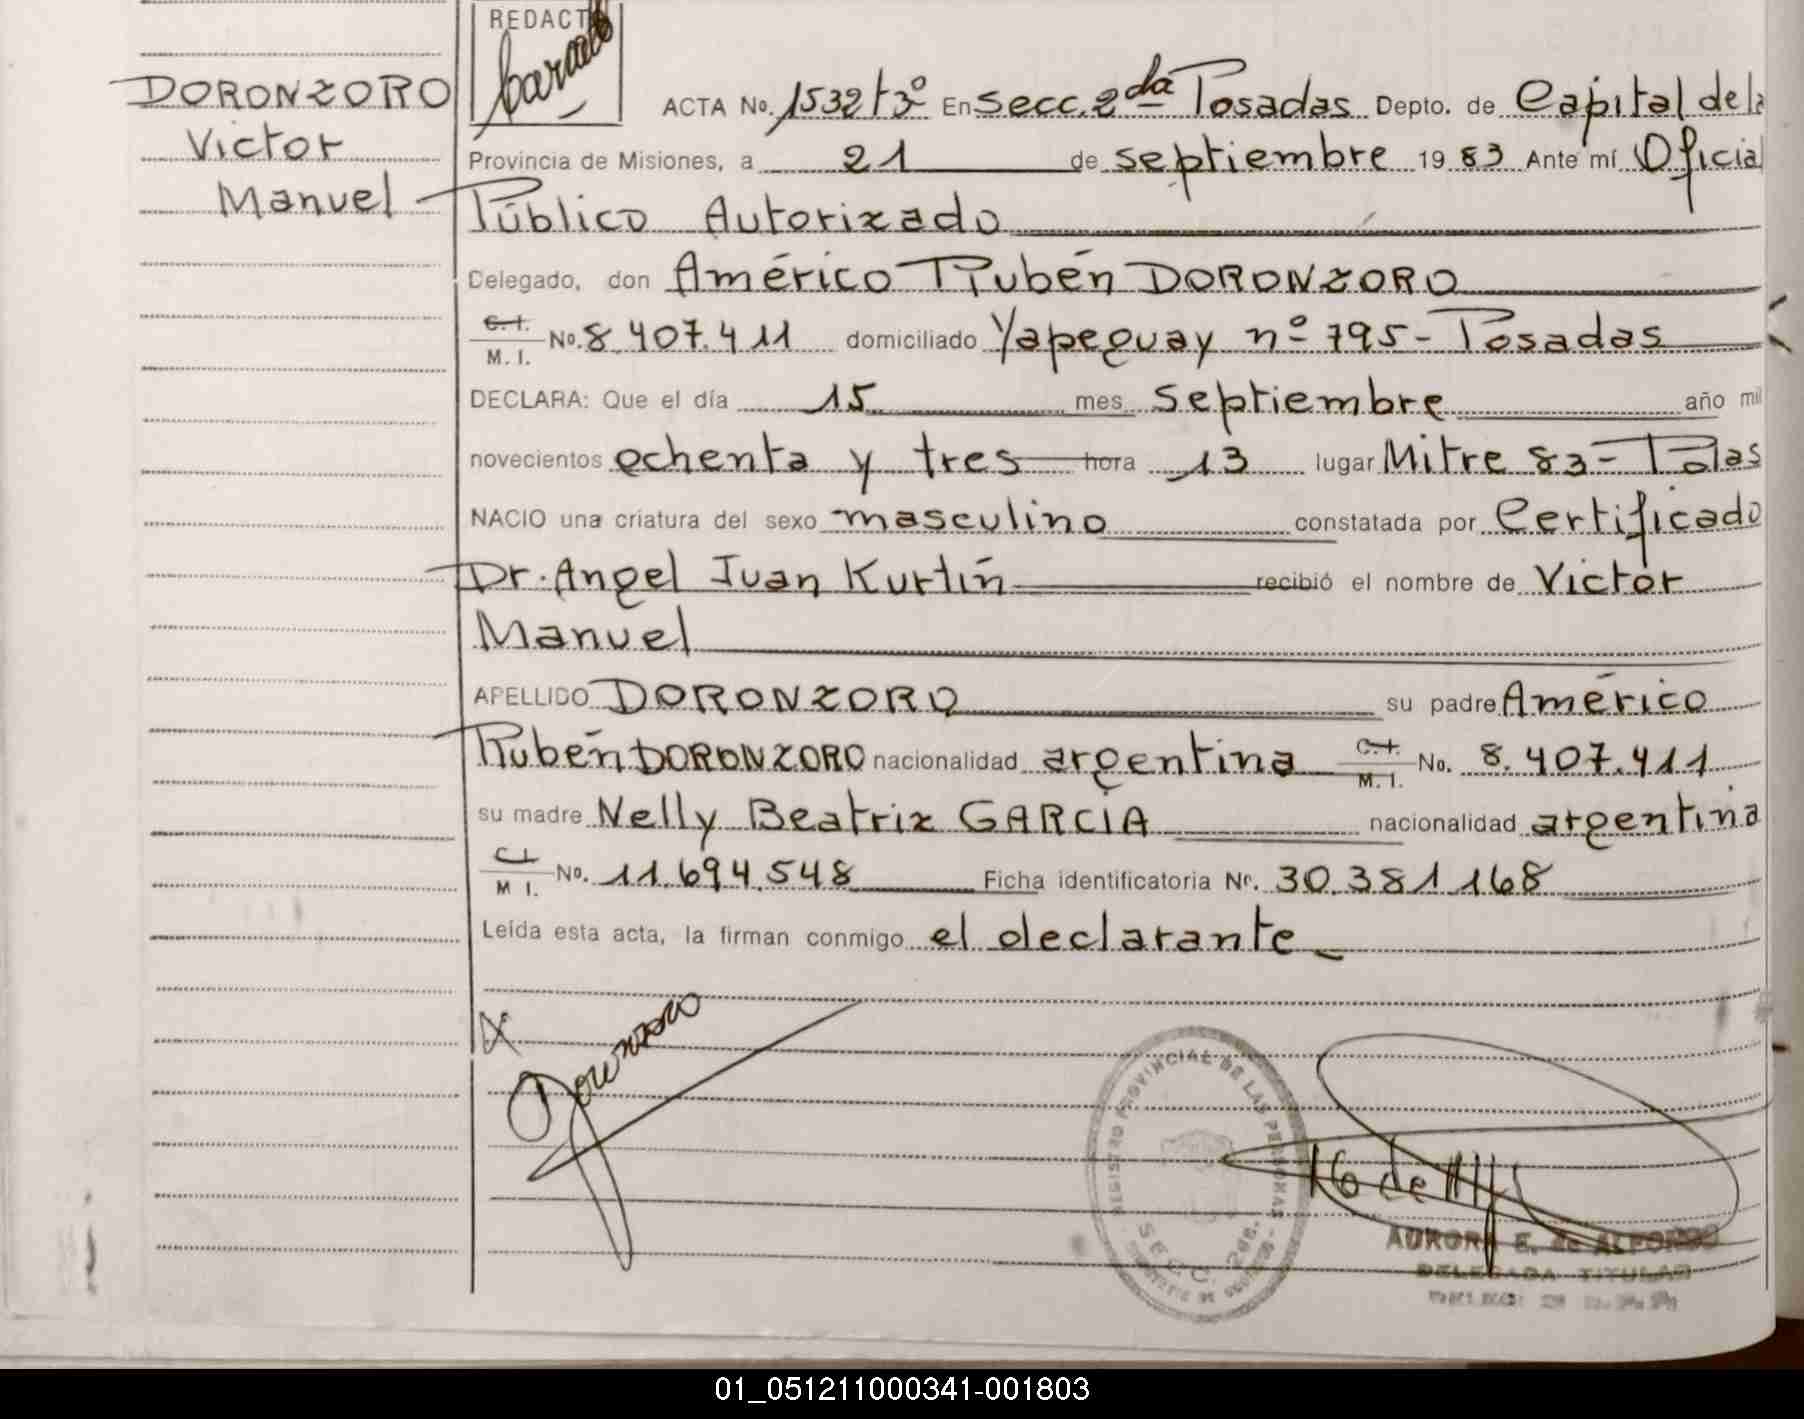 REDACT
DORONZORO
Victor
Manuel
ACTA No. 1532 tº 3º En Secc. 2da Posadas Depto. de Capital de la
Provincia de Misiones, a 21 de septiembre 1983 Ante mí Oficial
Público Autorizado
Delegado, don Américo Rubén DORONZORO
C.I. M.I. No. 8.407.411 domiciliado Yapeguay nº 795 - Posadas
DECLARA: Que el día 15 mes septiembre año mil
novecientos ochenta y tres hora 13 lugar Mitre 83 - Pdas
NACIO una criatura del sexo masculino constatada por Certificado
Dr. Angel Juan Kurtin recibió el nombre de Victor
Manuel
APELLIDO DORONZORO su padre Américo
Rubén DORONZORO nacionalidad argentina C.I. M.I. No. 8.407.411
su madre Nelly Beatriz GARCIA nacionalidad argentina
C.I. M I. No. 11.694.548 Ficha identificatoria Nº. 30.381.168
Leída esta acta, la firman conmigo el declarante
REGISTRO PROVINCIAL DE LAS PERSONAS
SECC. 2da.
AURORA E. de ALFONSO
DELEGADA TITULAR
01_051211000341-001803